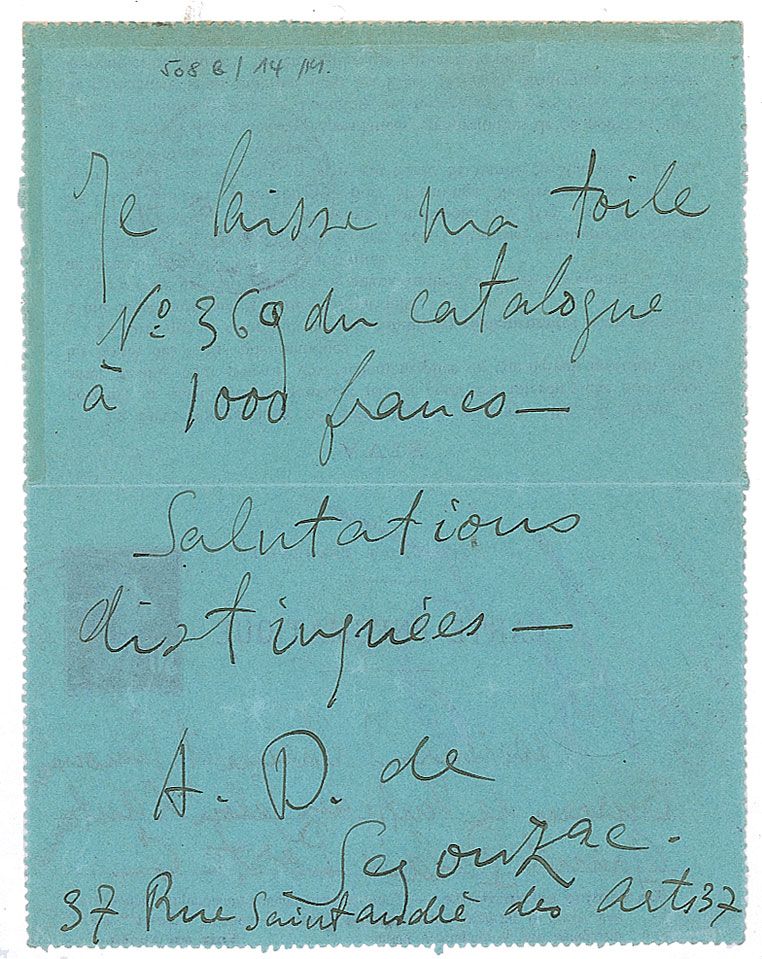 508 B / 14 /M.
Je laisse ma toile
No 369 du catalogue
à 1000 francs —
Salutations
distinguées —
A. D. de
Segonzac.
37 Rue Saint andré des Arts 37